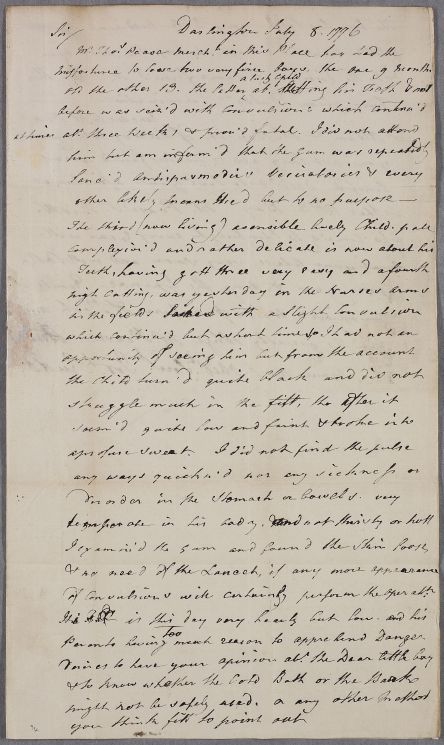 Sir/ Darlington July 8. 1776
Mr. Thos. Pease Merch.t in this Place has had the
misfortune to loose two very fine Boys, the one 9 Months
a lusty Child
old the other 13. the latter abt. Cutting his Teeth & not
before was seiz'd with Convulsions which continu'd
at times abt. three Weeks & prov'd fatal. I did not attend
him but am inform'd that the Gum was repeatedly
lanc'd Antispasmodics Vesicatories & every
other likely means used but to no purpose —
The third (now living) a sensible lively Child. pale
complexion'd and rather delicate is now about his
Teeth, having gott three very easy and a fourth
nigh Cutting, was yesterday in the Nurses arms
in the fields with a Slight Convulsion
which continu'd but a short time & I had not an
opportunity of seeing him but from the account
the Child turn'd quite black and did not
struggle much in the fitt, tho after it
seem'd quite low and faint & broke into
a profuse Sweat. I did not find the pulse
any ways quicken'd nor any sickness or
disorder in the Stomach or bowels. very
temperate in his body, and not thirsty or hott
I examin'd the Gum and found the Skin loose
& no need of the Lancet, if any more appearance
of Convulsions will certainly perform the operatn.
He is this day very hearty but low. and his
too
Parents having much reason to apprehend Danger
desires to have your opinion abt. the Dear little boy
& to know whether the Cold Bath or the Bark
might not be safely used. or any other method
you think fitt to point out